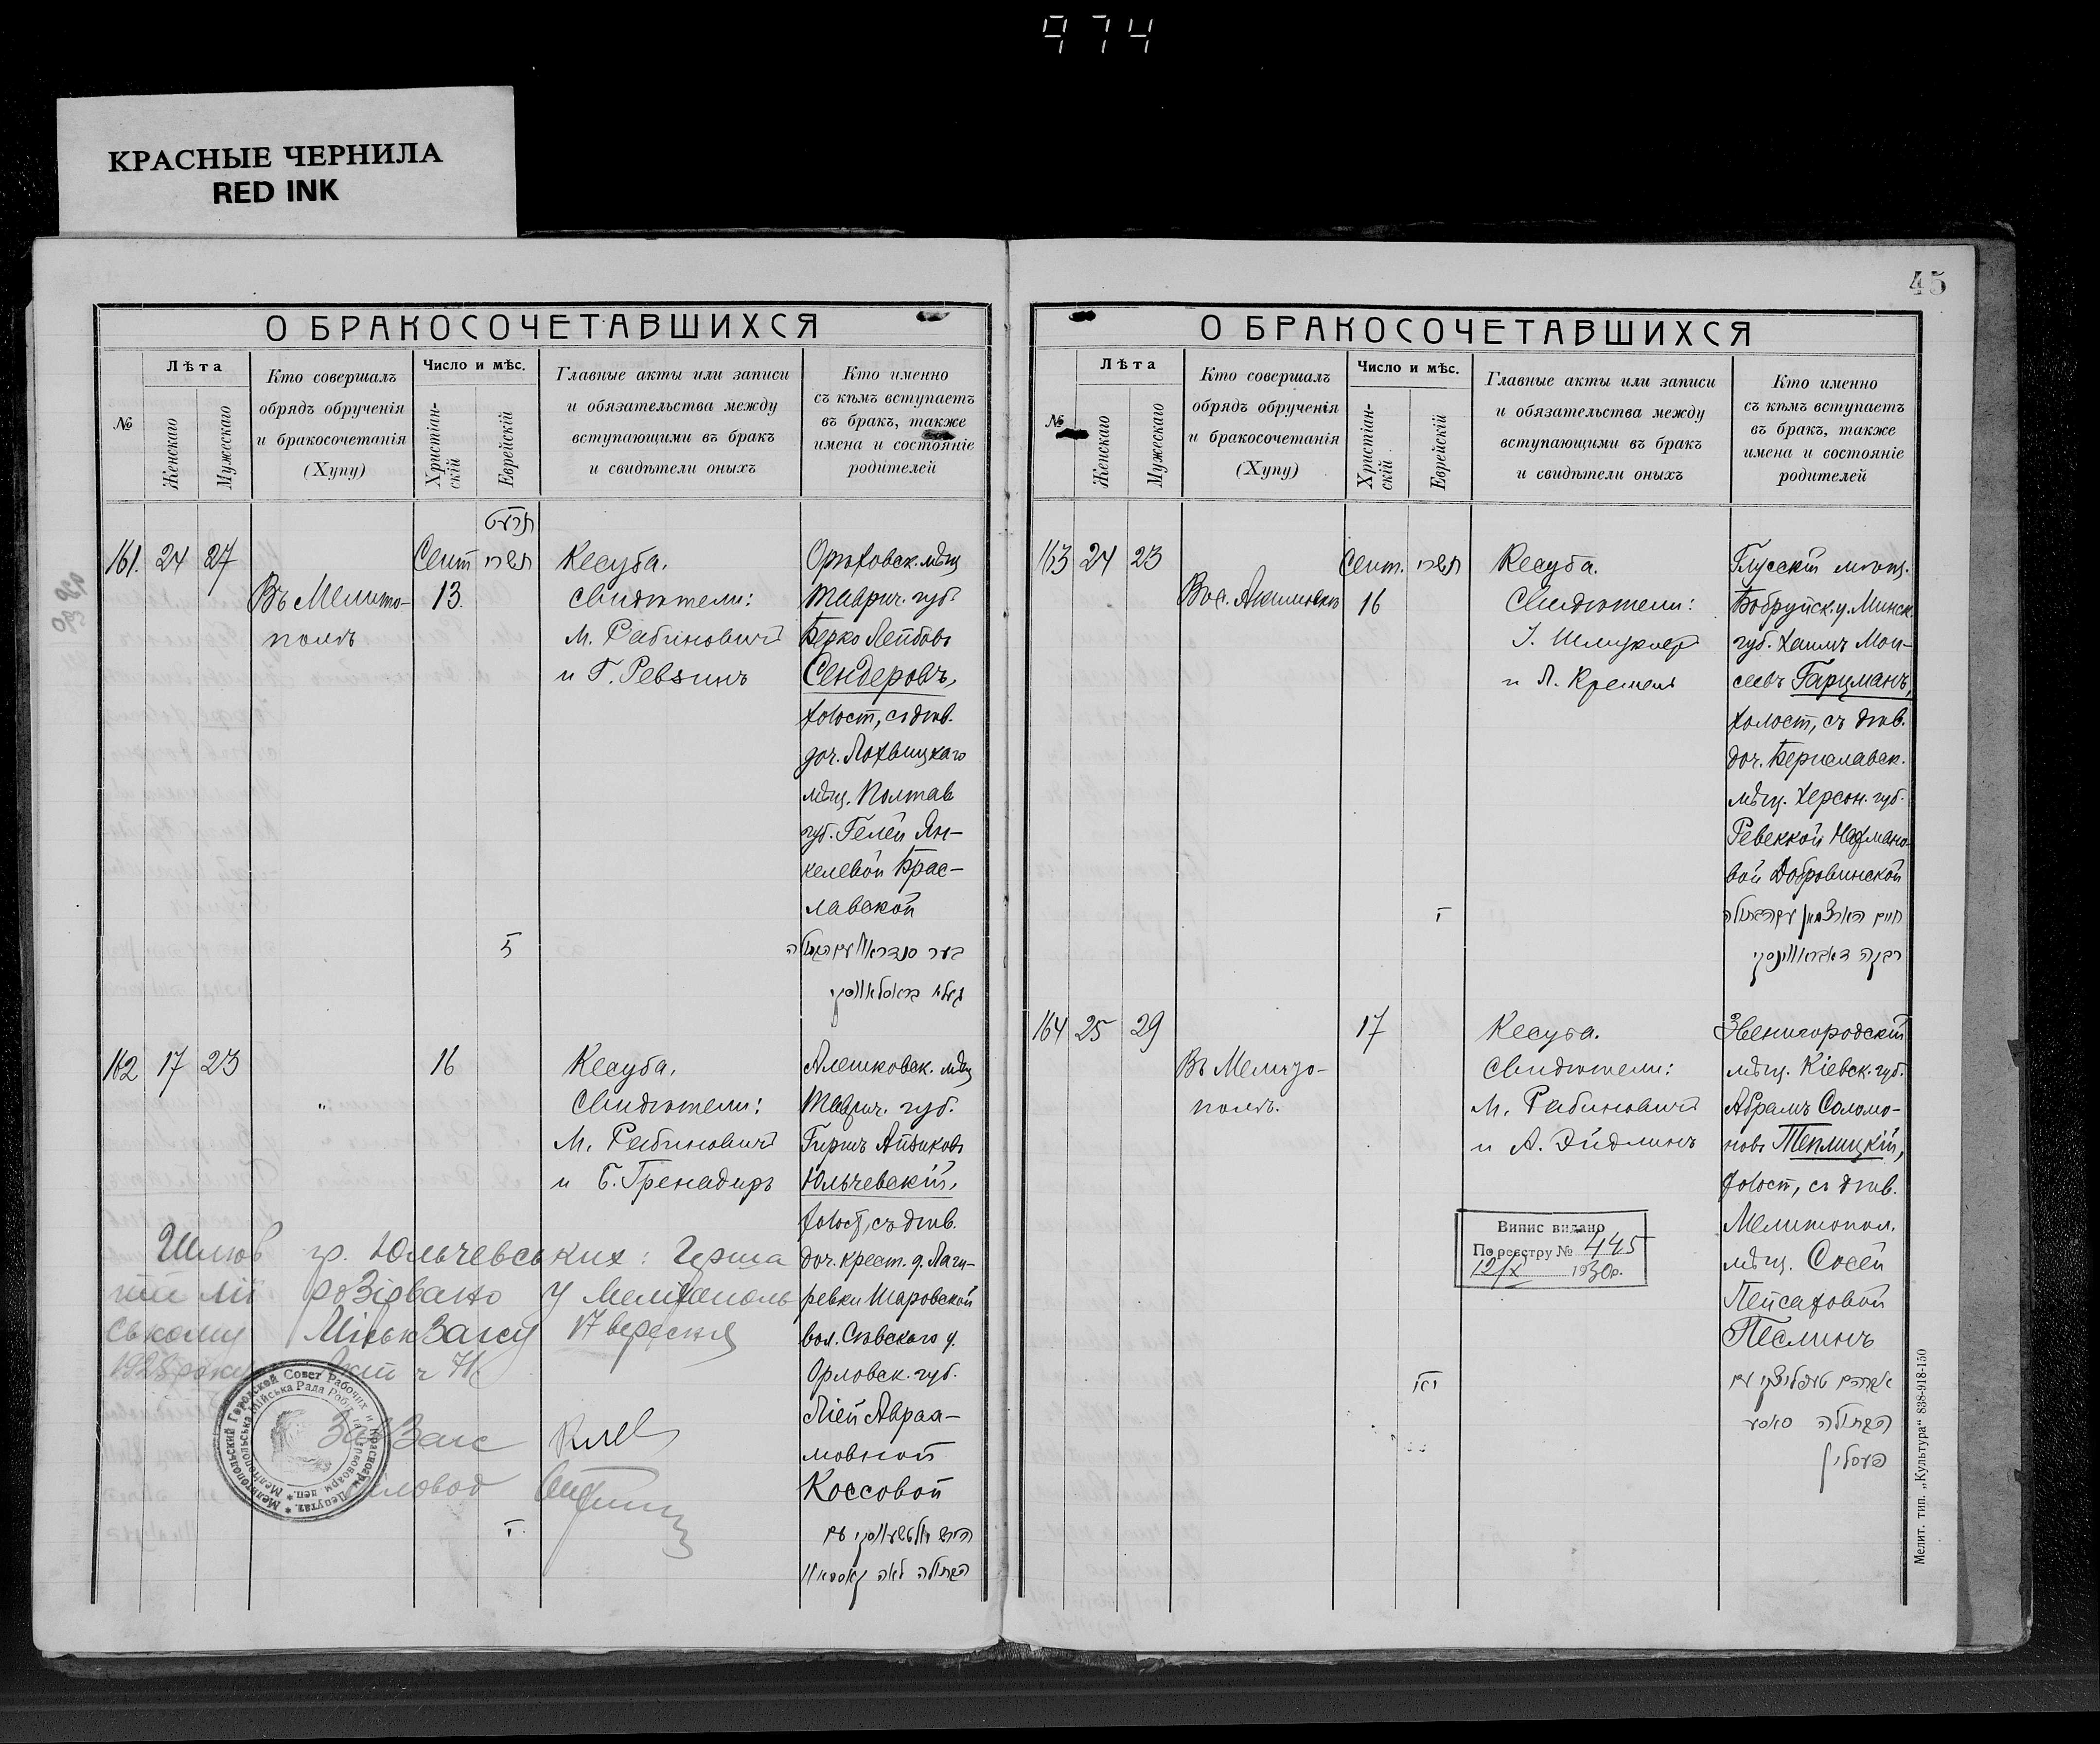 974
КРАСНЫЕ ЧЕРНИЛА
RED INK
О БРАКОСОЧЕТАВШИХСЯ
№
Лѣта
Женскаго
Мужескаго
Кто совершалъ
обрядъ обрученія
и бракосочетанія
(Хупу)
Число и мѣс.
Христіан-
скій
Еврейскій
Главные акты или записи
и обязательства между
вступающими въ бракъ
и свидѣтели оныхъ
Кто именно
съ кѣмъ вступаетъ
въ бракъ, также
имена и состояніе
родителей
161. 24 27
Въ Мелито-
полѣ
Сент
13.
תשרי
Кесуба.
Свидѣтели:
М. Рабиновичъ
и Г. Ревзинъ
Орѣховск. мѣщ
Таврич. губ.
Берко Лейбовъ
Сендеровъ,
холост, съ дѣв.
доч. Лохвицкаго
мѣщ. Полтав
губ. Гелей Ян-
келевой Брас-
лавской
162 17 23
"
16
Кесуба.
Свидѣтели:
М. Рабиновичъ
и Б. Гренадиръ
Алешковск. мѣщ
Таврич. губ.
Гиршъ Айзиковъ
Юльчевскій,
холост, съ дѣв.
доч. крест. д.
Шаровской
вол. Сѣвскаго у.
Орловск. губ.
Ліей Авраа-
мовной
Коссовой
Шлюб гр. Юльчевських: Герша
Лії розірвано у Мелітополь
ському 17 вересня
1928 року Акт ч
ЗавЗагс
45
О БРАКОСОЧЕТАВШИХСЯ
№
Лѣта
Женскаго
Мужескаго
Кто совершалъ
обрядъ обрученія
и бракосочетанія
(Хупу)
Число и мѣс.
Христіан-
скій
Еврейскій
Главные акты или записи
и обязательства между
вступающими въ бракъ
и свидѣтели оныхъ
Кто именно
съ кѣмъ вступаетъ
въ бракъ, также
имена и состояніе
родителей
163 24 23
Въ с. Акимовкѣ
Сент.
16
תשרי
Кесуба.
Свидѣтели:
и Л. Кремень
Глусскій мѣщ.
Бобруйск. у. Минск.
губ. Хаимъ Мои-
сеевъ Гарцманъ,
холост, съ дѣв.
доч. Бериславск.
мѣщ. Херсон. губ.
Ревеккой Нахмано-
вой Добровинской
164 25 29
Въ Мелито-
полѣ.
17
Кесуба.
Свидѣтели:
М. Рабиновичъ
и А. Эйдлинъ
Звенигородскій
мѣщ. Кіевск. губ.
Абрамъ Соломо-
новъ Теплицкій,
холост, съ дѣв.
Мелитопол.
мѣщ. Сосей
Пейсаховой
Песлинъ
Випис видано
По реєстру № 445
12/X 1930р.
Мелит. тип. „Культура" 838-918-150